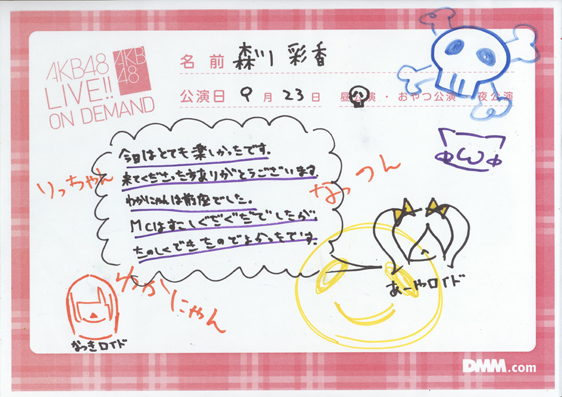 AKB48
LIVE!!
ON DEMAND
AKB
48
名前 森川 彩香
公演日 9月23日 昼公演・おやつ公演・夜公演
今日はとても楽しかったです。
来てくださった方ありがとうございます。
わかにゃんは前座でした。
MCはすこしぐだぐだでしたが
たのしくできたのでよかったです。
りっちゃん
なっつん
わかにゃん
なつきロイド
あーやロイド
DMM.com